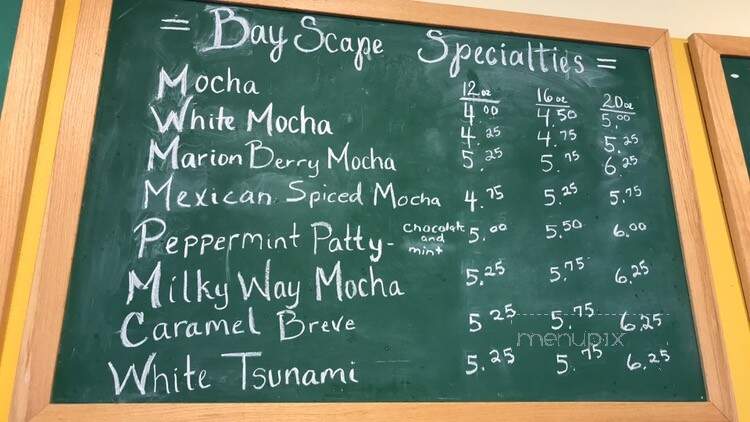 = Bay Scape Specialties =
12oz 16oz 20oz
Mocha 4.00 4.50 5.00
White Mocha 4.25 4.75 5.25
Marion Berry Mocha 5.25 5.75 6.25
Mexican Spiced Mocha 4.75 5.25 5.75
Peppermint Patty - chocolate and mint 5.00 5.50 6.00
Milky Way Mocha 5.25 5.75 6.25
Caramel Breve 5.25 5.75 6.25
White Tsunami 5.25 5.75 6.25
menupix